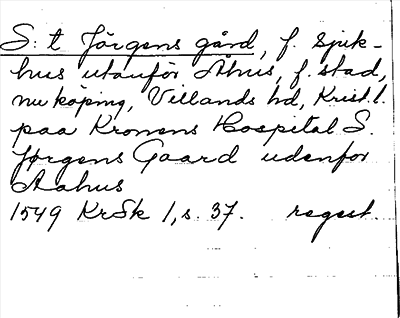 S:t Jörgens gård, f. sjuk-
hus utanför Åhus, f. stad,
nu köping, Villands hd, Krist. l.
paa Kronens Hospital S.
Jørgens Gaard udenfor
Aahus
1549 KrSk 1, s. 37. regest.